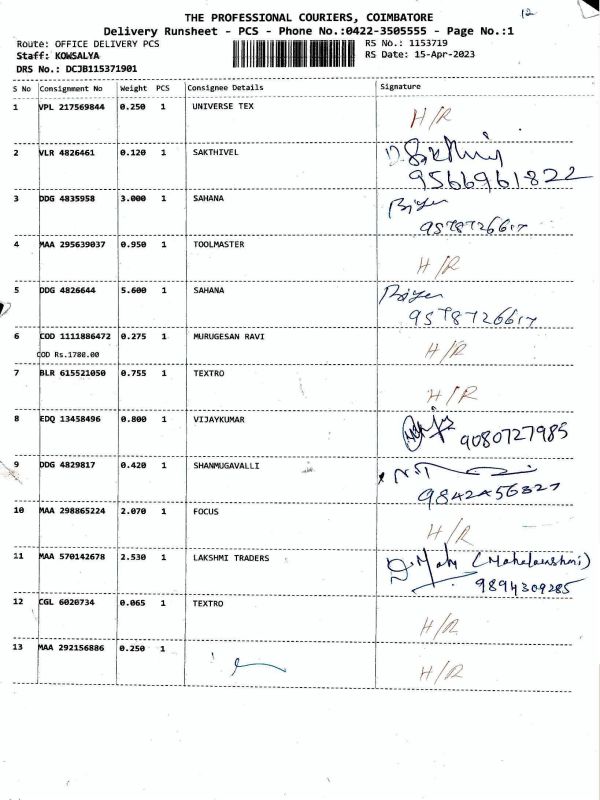 12
THE PROFESSIONAL COURIERS, COIMBATORE
Delivery Runsheet - PCS - Phone No.:0422-3505555 - Page No.:1
Route: OFFICE DELIVERY PCS RS No.: 1153719
Staff: KOWSALYA RS Date: 15-Apr-2023
DRS No.: DCJB115371901
S No Consignment No Weight PCS Consignee Details Signature
1 VPL 217569844 0.250 1 UNIVERSE TEX H/R
2 VLR 4826461 0.120 1 SAKTHIVEL
9566961822
3 DDG 4835958 3.000 1 SAHANA
9578726617
4 MAA 295639037 0.950 1 TOOLMASTER H/R
5 DDG 4826644 5.600 1 SAHANA
9578726617
6 COD 1111886472 0.275 1 MURUGESAN RAVI H/R
COD Rs.1780.00
7 BLR 615521050 0.755 1 TEXTRO H/R
8 EDQ 13458496 0.800 1 VIJAYKUMAR 9080727985
9 DDG 4829817 0.420 1 SHANMUGAVALLI
10 MAA 298865224 2.070 1 FOCUS H/R
11 MAA 570142678 2.530 1 LAKSHMI TRADERS
9894309285
12 CGL 6020734 0.065 1 TEXTRO H/R
13 MAA 292156886 0.250 1 H/R